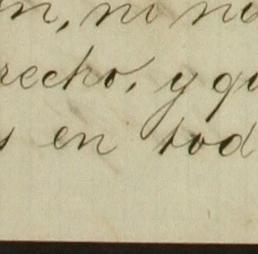 n, ni no
recho, y qu
s en tod